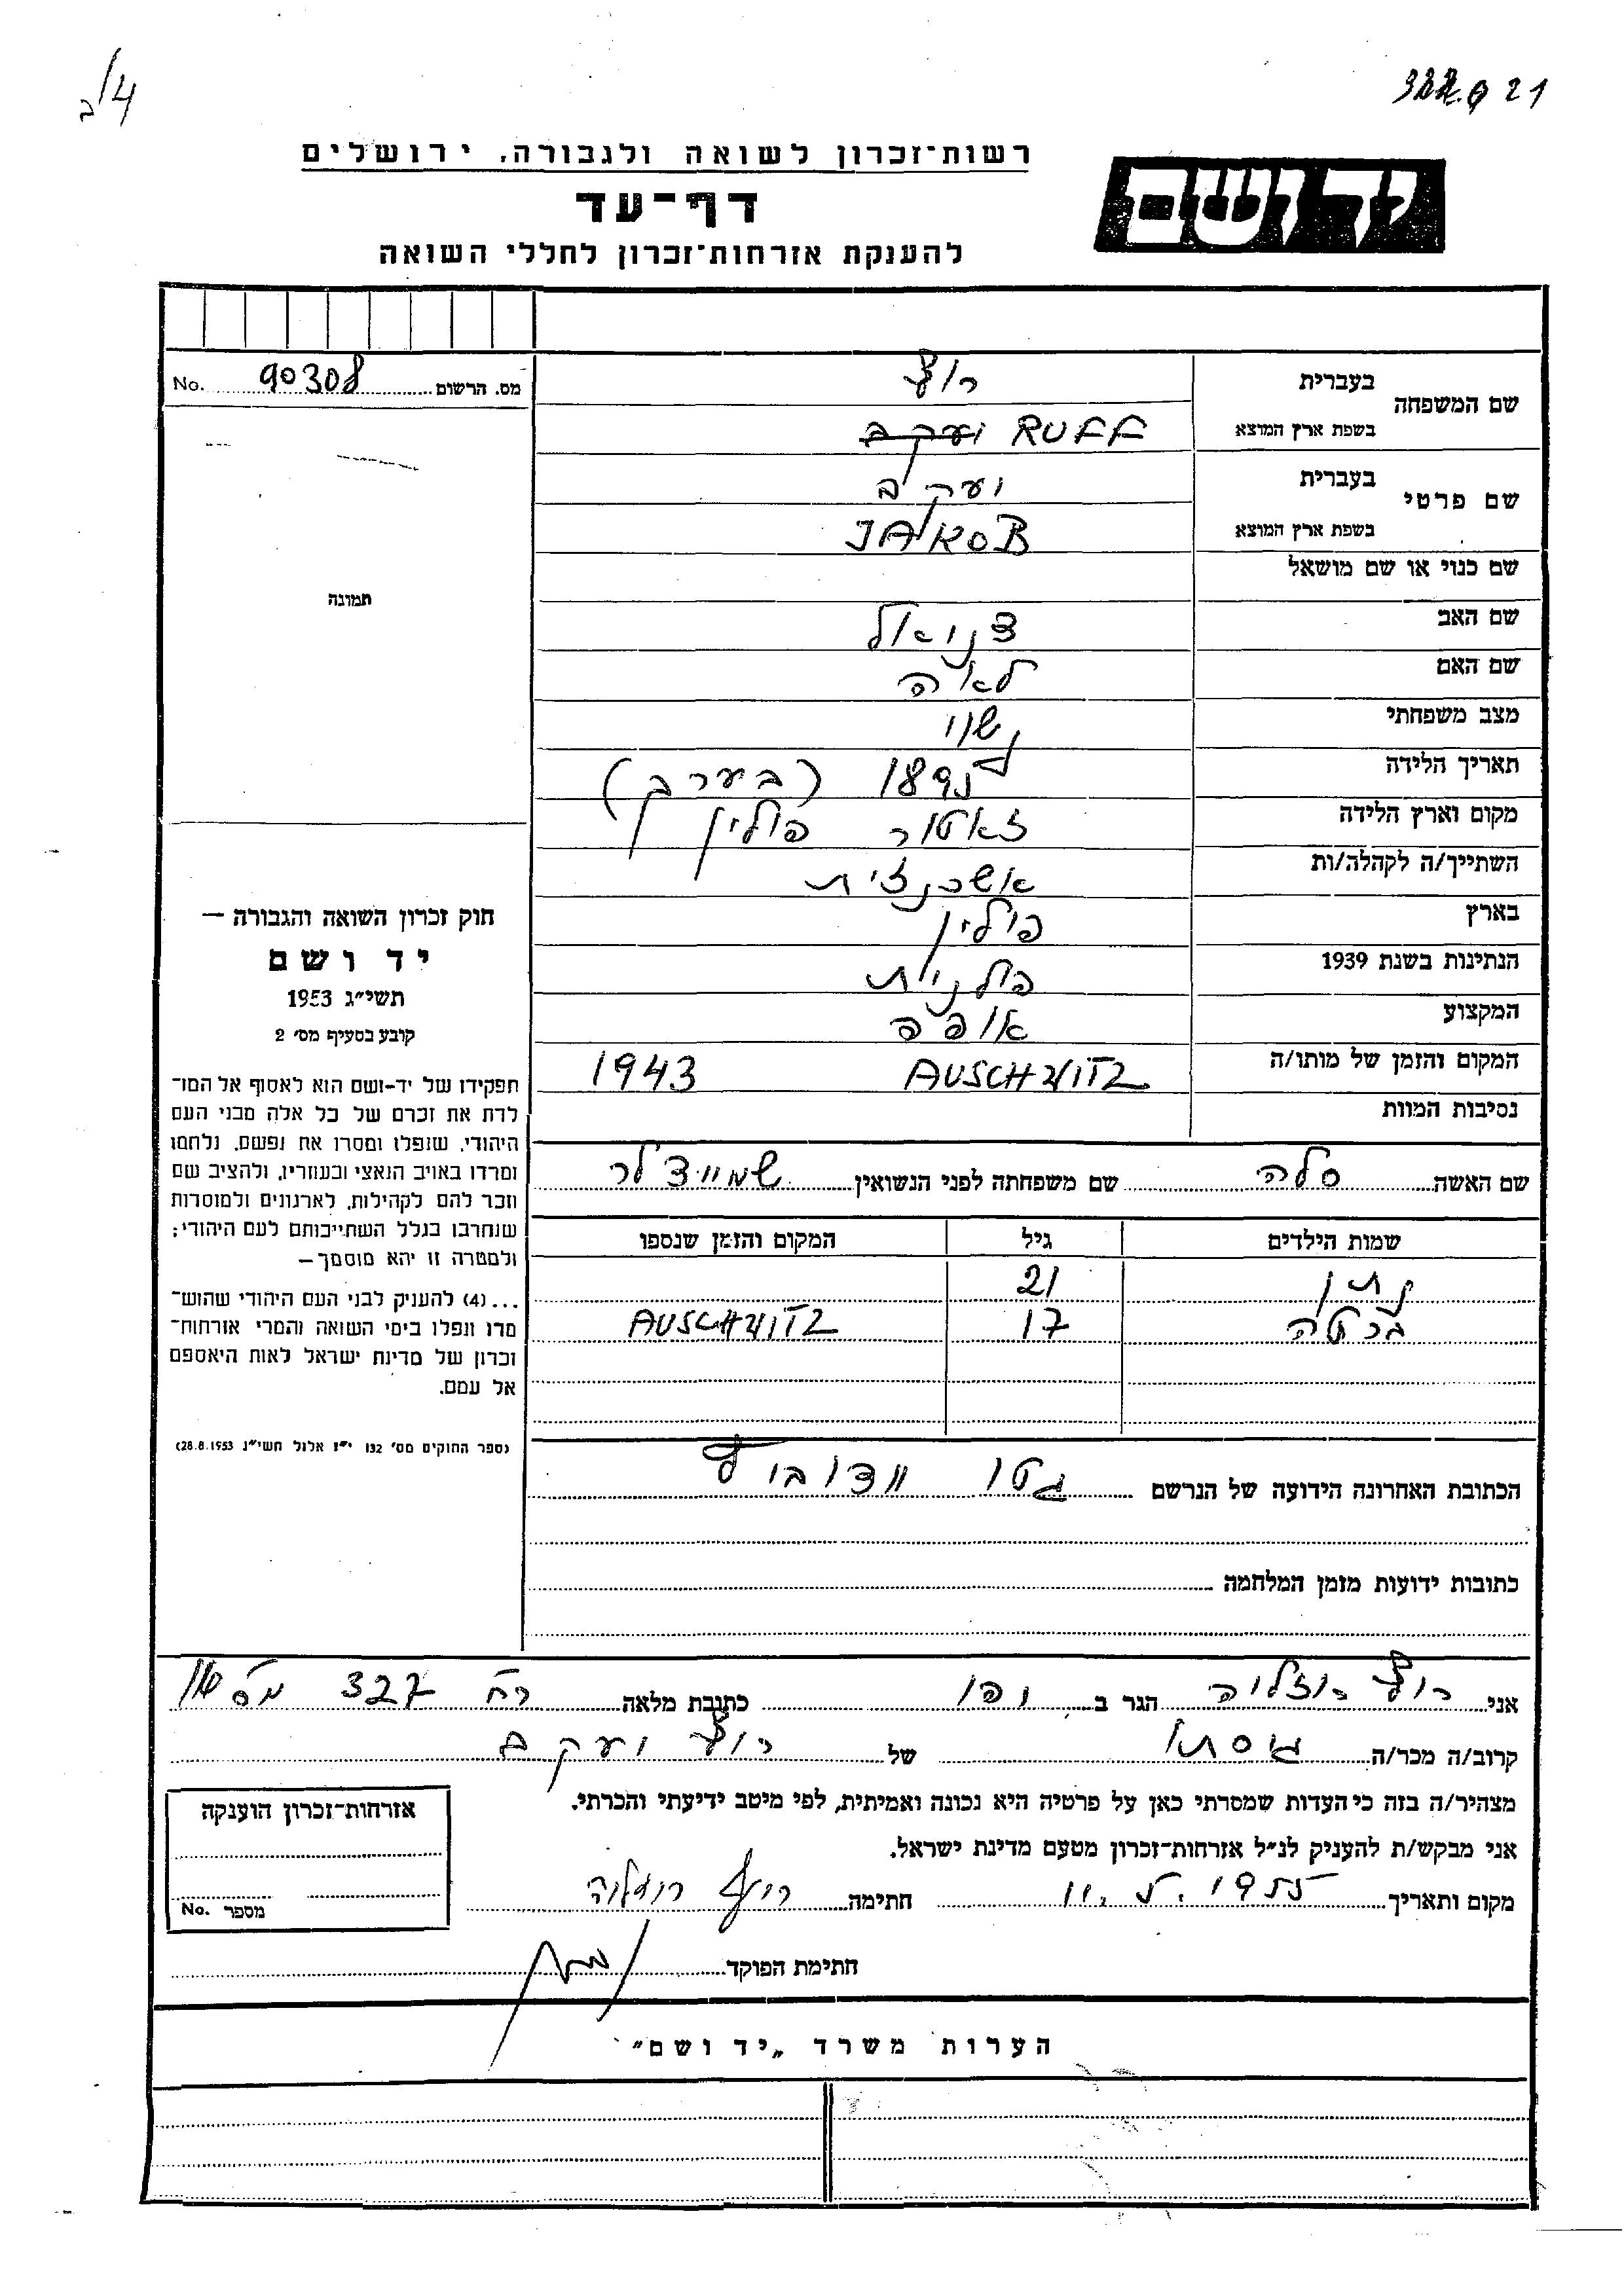 ב/4
רשות־זכרון לשואה ולגבורה, ירושלים
דף-עד
להענקת אזרחות־זכרון לחללי השואה
יד ושם
מס. הרשום 90308 No.
שם המשפחה
בעברית רוף
בשפת ארץ המוצא RUFF יעקב
שם פרטי
בעברית יעקב
בשפת ארץ המוצא JAKOB
שם כנוי או שם מושאל
שם האב דניאל
שם האם לאה
מצב משפחתי נשוי
תאריך הלידה 1895 (בערך)
מקום וארץ הלידה זאטור פולין
השתייך/ה לקהלה/ות אשכנזית
בארץ פולין
הנתינות בשנת 1939 פולנית
המקצוע אופה
המקום והזמן של מותו/ה AUSCHWITZ 1943
נסיבות המוות
תמונה
חוק זכרון השואה והגבורה –
יד ושם
תשי״ג 1953
קובע בסעיף מס׳ 2
תפקידו של יד-ושם הוא לאסוף אל המו־
לדת את זכרם של כל אלה מבני העם
היהודי, שנפלו ומסרו את נפשם, נלחמו
ומרדו באויב הנאצי ובעוזריו, ולהציב שם
וזכר להם לקהילות, לארגונים ולמוסדות
שנחרבו בגלל השתייכותם לעם היהודי;
ולמטרה זו יהא מוסמך–
...(4) להעניק לבני העם היהודי שהוש־
מדו ונפלו בימי השואה והמרי אזרחות־
זכרון של מדינת ישראל לאות היאספם
אל עמם.
(ספר החוקים מס׳ 132 י״ז אלול תשי״ג 28.8.1953)
שם האשה סלה שם משפחתה לפני הנשואין שמיידלר
שמות הילדים גיל המקום והזמן שנספו
נתן 21
ברטה 17 AUSCHWITZ
הכתובת האחרונה הידועה של הנרשם גטו
כתובות ידועות מזמן המלחמה
אני רוף רוזליה הגר ב יפו כתובת מלאה רח 327 מס
קרוב/ה מכר/ה גיסתו של רוף יעקב
מצהיר/ה בזה כי העדות שמסרתי כאן על פרטיה היא נכונה ואמיתית, לפי מיטב ידיעתי והכרתי.
אני מבקש/ת להעניק לנ״ל אזרחות־זכרון מטעם מדינת ישראל.
מקום ותאריך 11.5.1955 חתימה רוף רוזליה
חתימת הפוקד
אזרחות־זכרון הוענקה
מספר No.
הערות משרד „יד ושם״